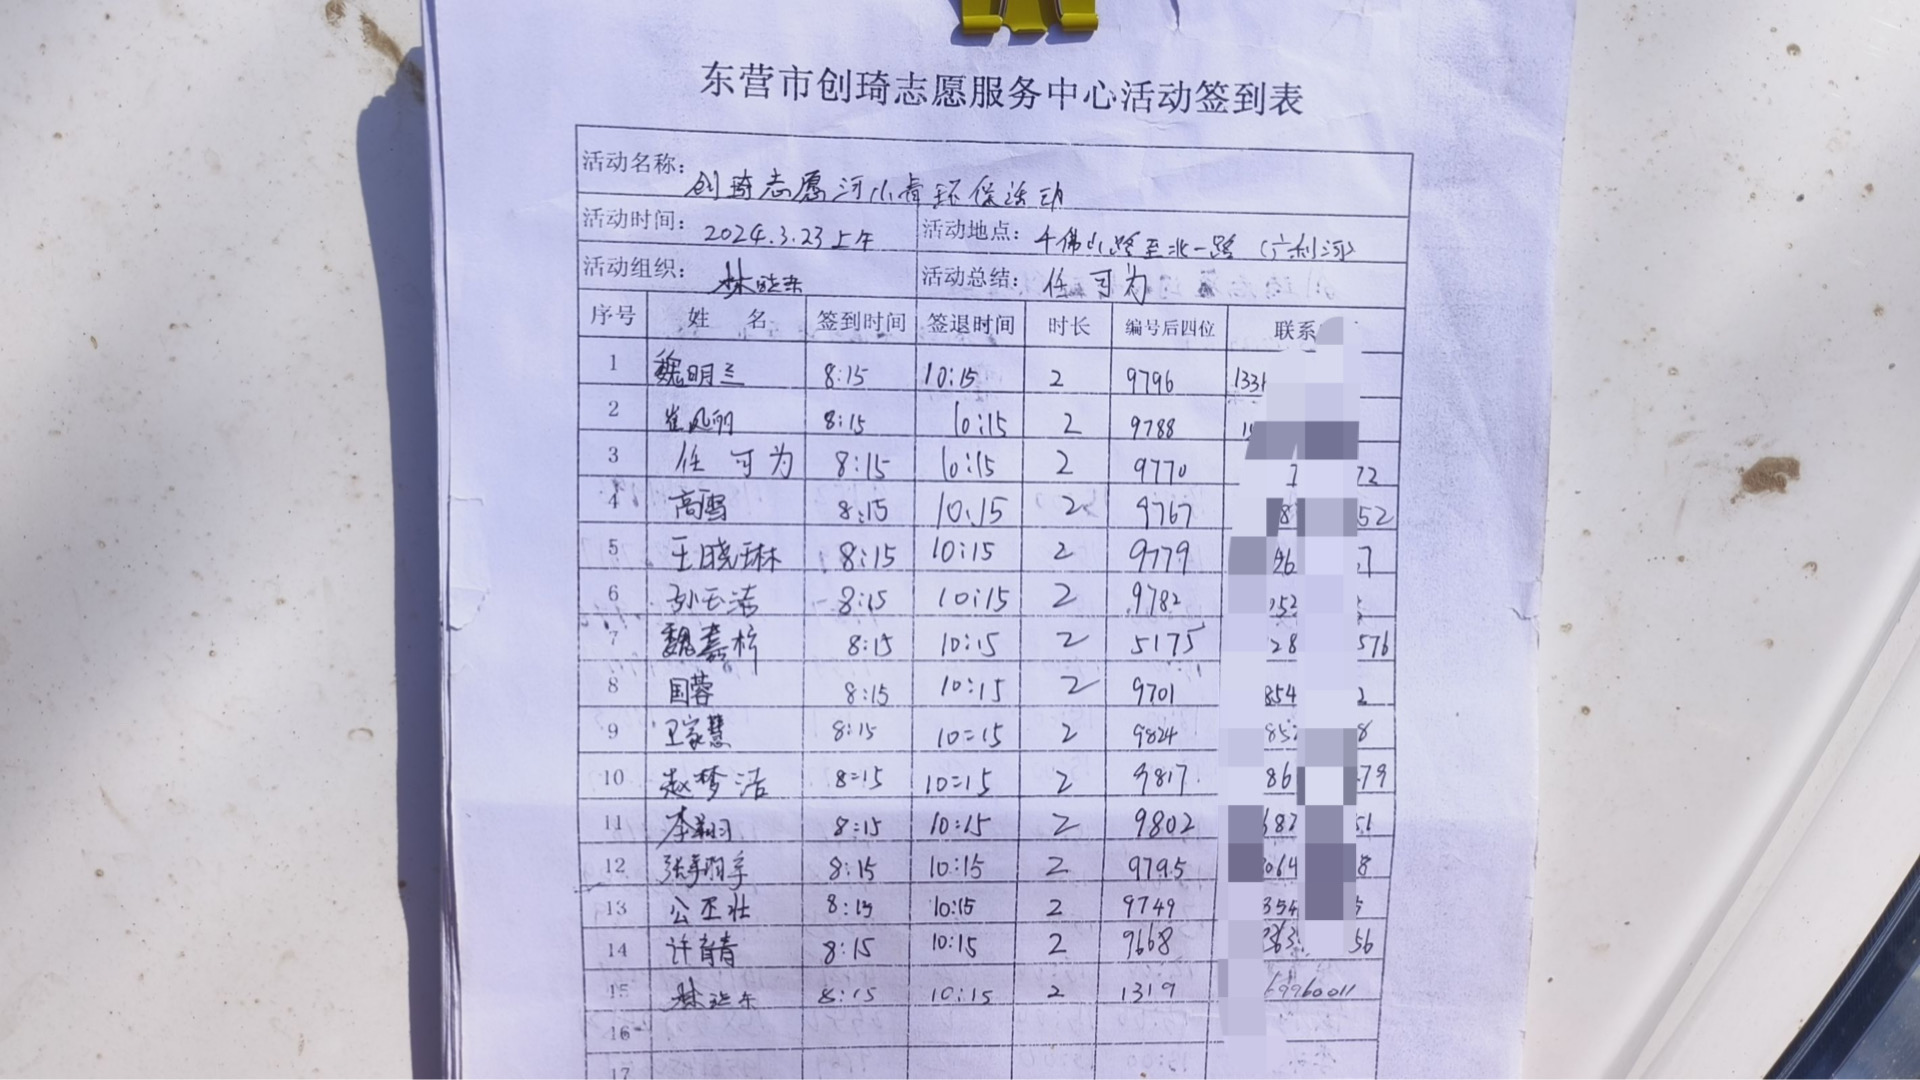 东营市创琦志愿服务中心活动签到表
活动名称：创琦志愿河小青环保活动
活动时间：2024.3.23上午 活动地点：千佛山路至北一路（广利河）
活动组织：林晓东 活动总结：任可为
序号 姓名 签到时间 签退时间 时长 编号后四位 联系
1 魏明兰 8:15 10:15 2 9796 133
2 崔凤丽 8:15 10:15 2 9788
3 任可为 8:15 10:15 2 9770 72
4 高雪 8:15 10:15 2 9767 8 52
5 王晓琳 8:15 10:15 2 9779 46 7
6 孙玉洁 8:15 10:15 2 9782 52
7 魏嘉梓 8:15 10:15 2 5175 28 576
8 国蓉 8:15 10:15 2 9701 854 2
9 卫家慧 8:15 10=15 2 9824 85 8
10 赵梦洁 8=15 10=15 2 9817 86 79
11 李翔 8:15 10:15 2 9802 687 51
12 8:15 10:15 2 9795 064 8
13 公丕壮 8:15 10:15 2 9749 354
14 许青青 8:15 10:15 2 9668 363 56
15 林晓东 8:15 10:15 2 1319 69960011
16
17